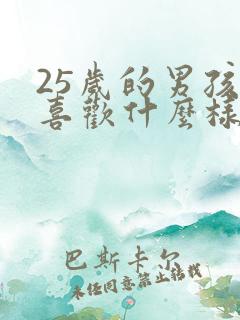 25歲的男孩
喜歡什麼樣
巴斯卡尔
未经同意禁止转载